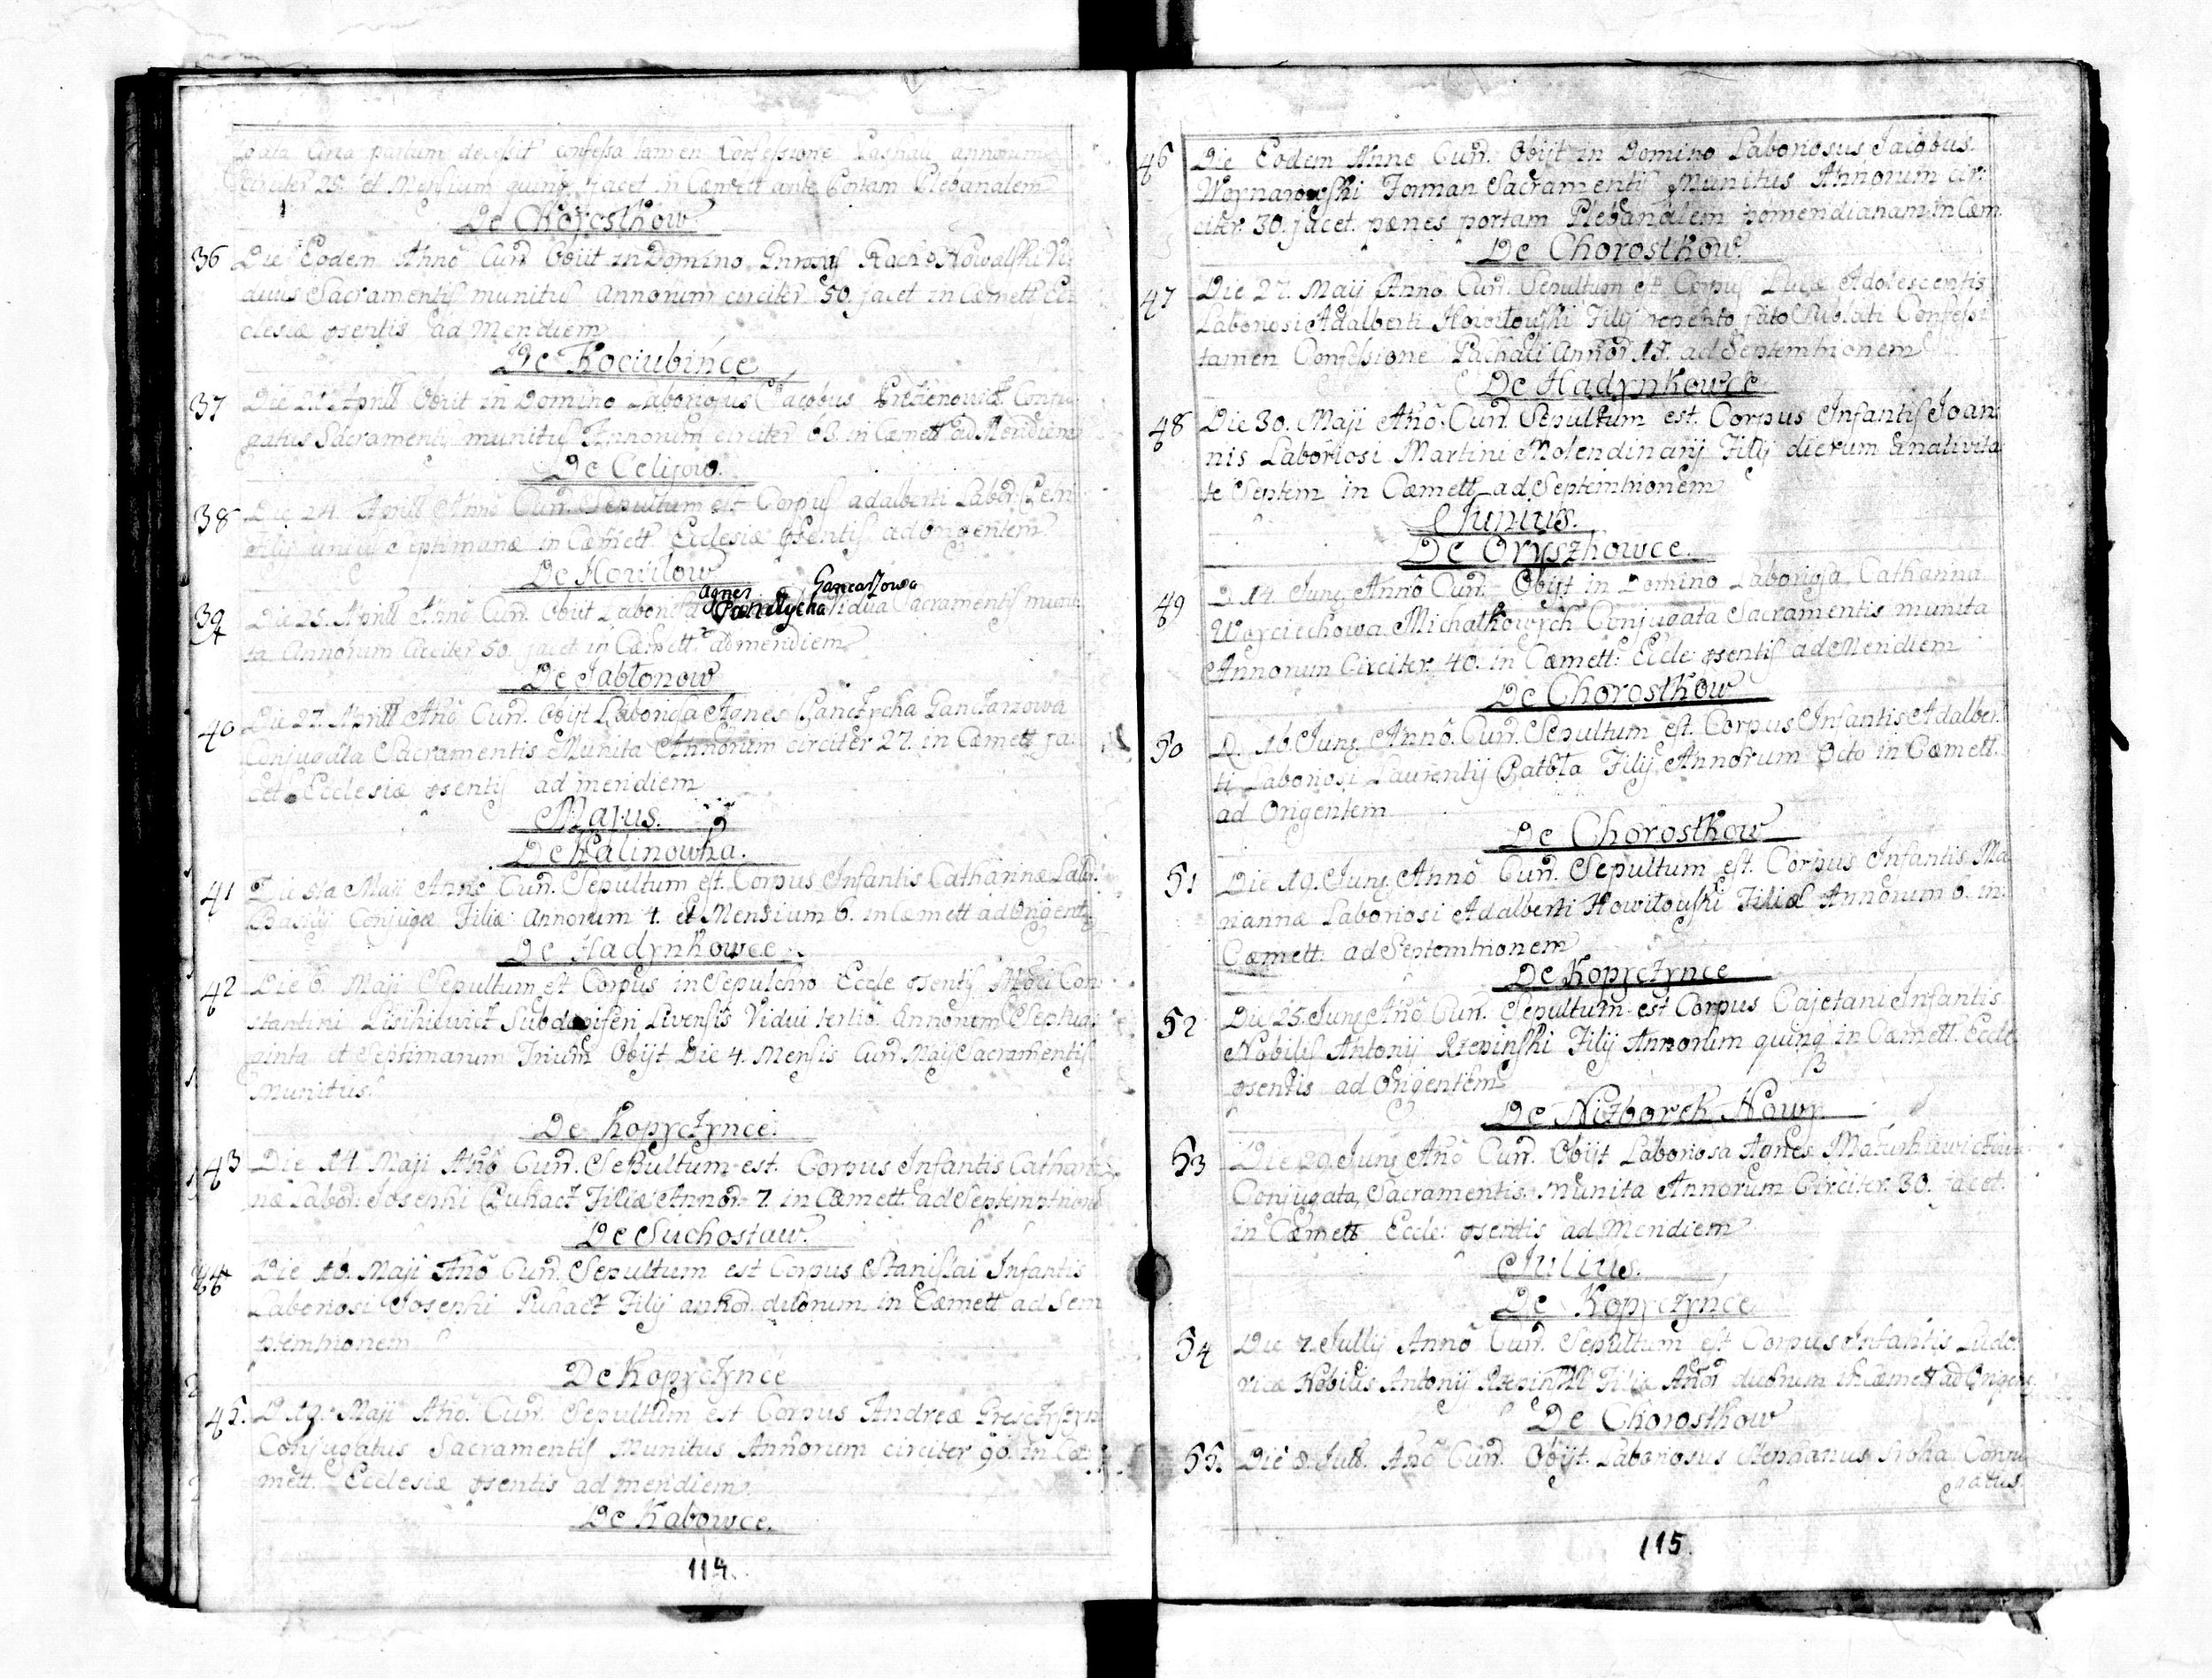 gata circa partum decessit confessa tamen Confessione Paschali annorum
circiter 25. et Mensium quinq jacet in Cæmett ante Portam Plebanalem
De Chorostkow
36 Die Eodem Anno Curr. Obiit in Domino Kowalski Vi
duus Sacramentis munitus annorum circiter 50. jacet in Cæmett Ec
clesiæ psentis ad Meridiem
De Kociubince
37 Die Aprill Obiit in Domino Laboriosus Jacobus Conju
gatus Sacramentis munitus Annorum circiter 63. in Cæmett ad Meridiem
De Celijow.
38 Die 24. Aprill Anno Curr. Sepultum est Corpus adalberti Labor.
Filij unius Septimanæ in Cæmett Ecclesiæ psentis ad orientem
De Howilow
Agnes Gancarzowa
39 Die 25. Aprill Anno Curr. Obiit Laboriosa Vidua Sacramentis muni
ta Annorum Circiter 50. jacet in Cæmett ad meridiem
De Jabłonow
40 Die 27. Aprill Año Curr. Obijt Laboriosa Agnes Ganczarzowa
Conjugata Sacramentis Munita Annorum circiter 27. in Cæmett ja
cet Ecclesiæ psentis ad meridiem
Majus.
De Kalinowka.
41 Die Maji Anno Curr. Sepultum est. Corpus Infantis Catharinæ Labor.
Filiæ Annorum 4. et Mensium 6. in Cæmett ad Orient
De Hadynkowce.
42 Die 6. Maji Sepultum est Corpus in Sepulchro Eccle psentis Con
stantini Lisikiewicz Subdapiferi Livensis Vidui tertio Annorum Septua
ginta et Septimanum Trium Obijt Die 4. Mensis Curr. Maij Sacramentis
Munitus.
De Kopyczynce.
43 Die 14. Maji Año Curr. Sepultum est. Corpus Infantis Cathari
næ Labor. Josephi Puhacz Filiæ Annor. 7. in Cæmett. ad Septemptrione
De Suchostaw.
44 Die 16. Maji Año Curr. Sepultum est Corpus Stanislai Infantis
Laboriosi Josephi Puhacz Filij annor. duorum in Cæmett ad Sem
ptemtrionem
De Kopyczynce
45. D 19. Maji Año. Curr. Sepultum est Corpus Andreæ
Conjugatus Sacramentis Munitus Annorum circiter 90. in Cæ
mett. Ecclesiæ psentis ad meridiem.
De Kabowce.
114.
46 Die Eodem Anno Curr. Obijt in Domino Laboriosus Jacobus
Woynarowski Forman Sacramentis Munitus Annorum cir
citer 30. jacet. pænes portam Plebanalem pomeridianam in Cæm.
De Chorostkow.
47 Die 27. Maij Anno Curr. Sepultum est Corpus Lucæ Adolescentis
Laboriosi Adalberti Howitowski Filij repento fato Sublati Confessi
tamen Confessione Paschali Annor 17. ad Septemtrionem
De Hadynkowce
48 Die 30. Maji Año. Curr. Sepultum est. Corpus Infantis Joan
nis Laboriosi Martini Molendinarij Filij dierum a nativita
te Septem in Cæmett ad Septemtrionem
Junius.
De Oryszkowce.
49 D. 14. Junij Anno Curr. Obijt in Domino Laboriosa Catharina
Woyciechowa Michałkowych Conjugata Sacramentis munita
Annorum Circiter. 40. in Cæmett: Eccle psentis ad Meridiem
De Chorostkow
50 D. 16. Junij Anno. Curr. Sepultum est. Corpus Infantis Adalber
ti Laboriosi Laurentij Filij Annorum Octo in Cæmett.
ad Orientem
De Chorostkow
51 Die 19. Junij Anno Curr. Sepultum est. Corpus Infantis Ma
riannæ Laboriosi Adalberti Howitowski Filiæ Annorum 6. in
Cæmett. ad Septemtrionem
De Kopyczynce
52 Die 25. Junij Año Curr. Sepultum est Corpus Cajetani Infantis
Nobilis Antonij Rzepinski Filij Annorum quinq in Cæmett. Eccle
psentis ad Orientem
De Nizborck Nowy
53 Die 29. Junij Año Curr. Obijt Laboriosa Agnes
Conjugata Sacramentis munita Annorum Circiter. 30. jacet.
in Cæmett Eccle: psentis ad Meridiem
Julius.
De Kopyczynce
54 Die 7. Jullij Anno Curr. Sepultum est Corpus Infantis Ludo
vicæ Nobilis Antonij Rzepinski Filiæ Anor duorum in Cæmett ad Orient
De Chorostkow
55. Die 8. Jull. Año Curr. Obijt. Laboriosus Stephanus Conju
gatus.
115.